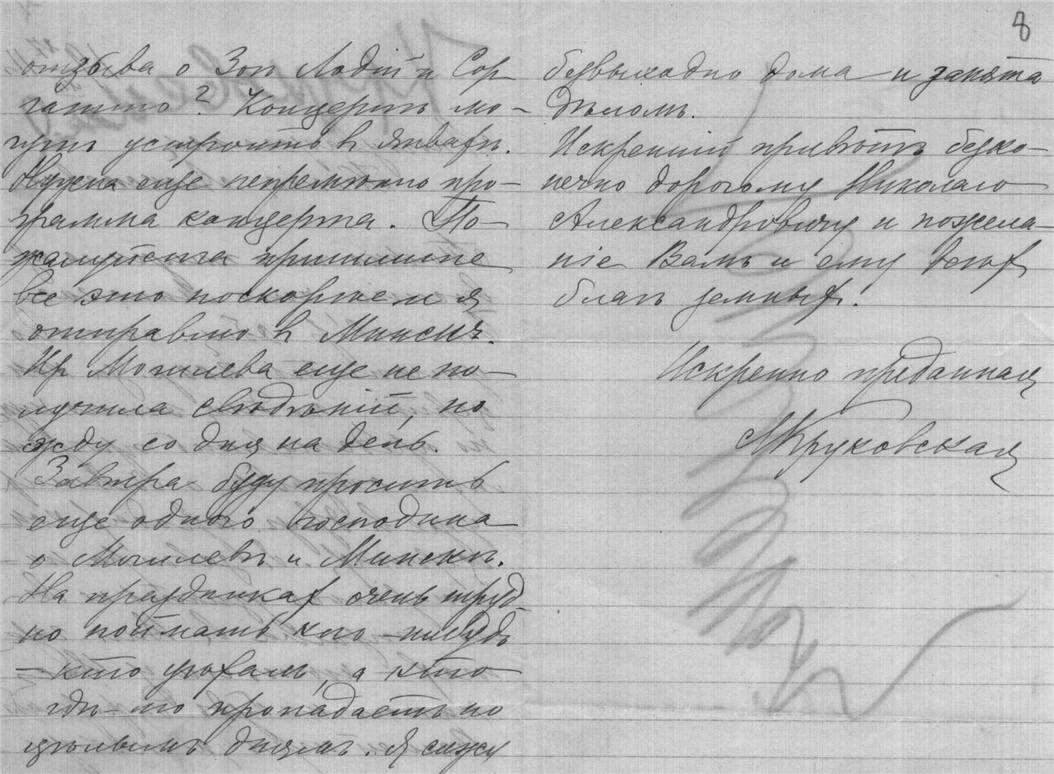 8
отзыва о Зои Лодий и Сор-
гатто? Концертъ мо-
гутъ устроить въ январѣ.
Нужна еще непремѣнно про-
грамма концерта. По-
жалуйста пришлите
все это поскорѣе и я
отправлю въ Минскъ.
Изъ Могилева еще не по-
лучила свѣдѣній, но
жду со дня на день.
Завтра буду просить
еще одного господина
о Могилевѣ и Минскѣ.
На праздникахъ очень труд-
но поймать кого-нибудь
– кто уѣхалъ, а кто
гдѣ-то пропадаетъ по
цѣлымъ днямъ. Я сижу
безвыходно дома и занята
дѣломъ.
Искренній привѣтъ безко-
нечно дорогому Николаю
Александровичу и пожела-
ніе Вамъ и ему всѣхъ
благъ земныхъ.
Искренно преданная
Круковская